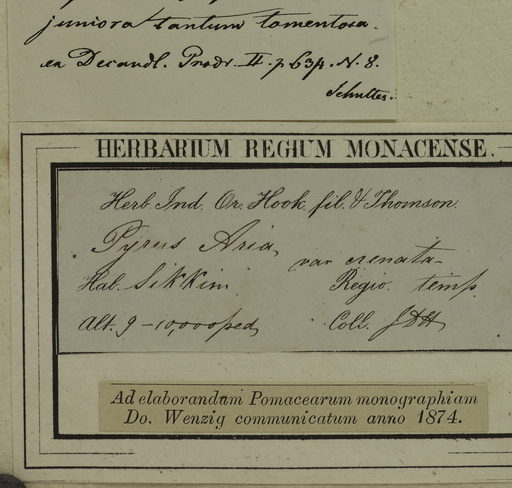 juniora tantum tomentosa.
ex Decandl. Prodr. II. p. 634. N. 8.
Schultes.
HERBARIUM REGIUM MONACENSE.
Herb. Ind. Or. Hook. fil. & Thomson.
Pyrus Aria, var crenata
Hab. Sikkim. Regio. temp.
Alt. 9-10,000 ped, Coll. JDH
Ad elaborandum Pomacearum monographiam
Do. Wenzig communicatum anno 1874.